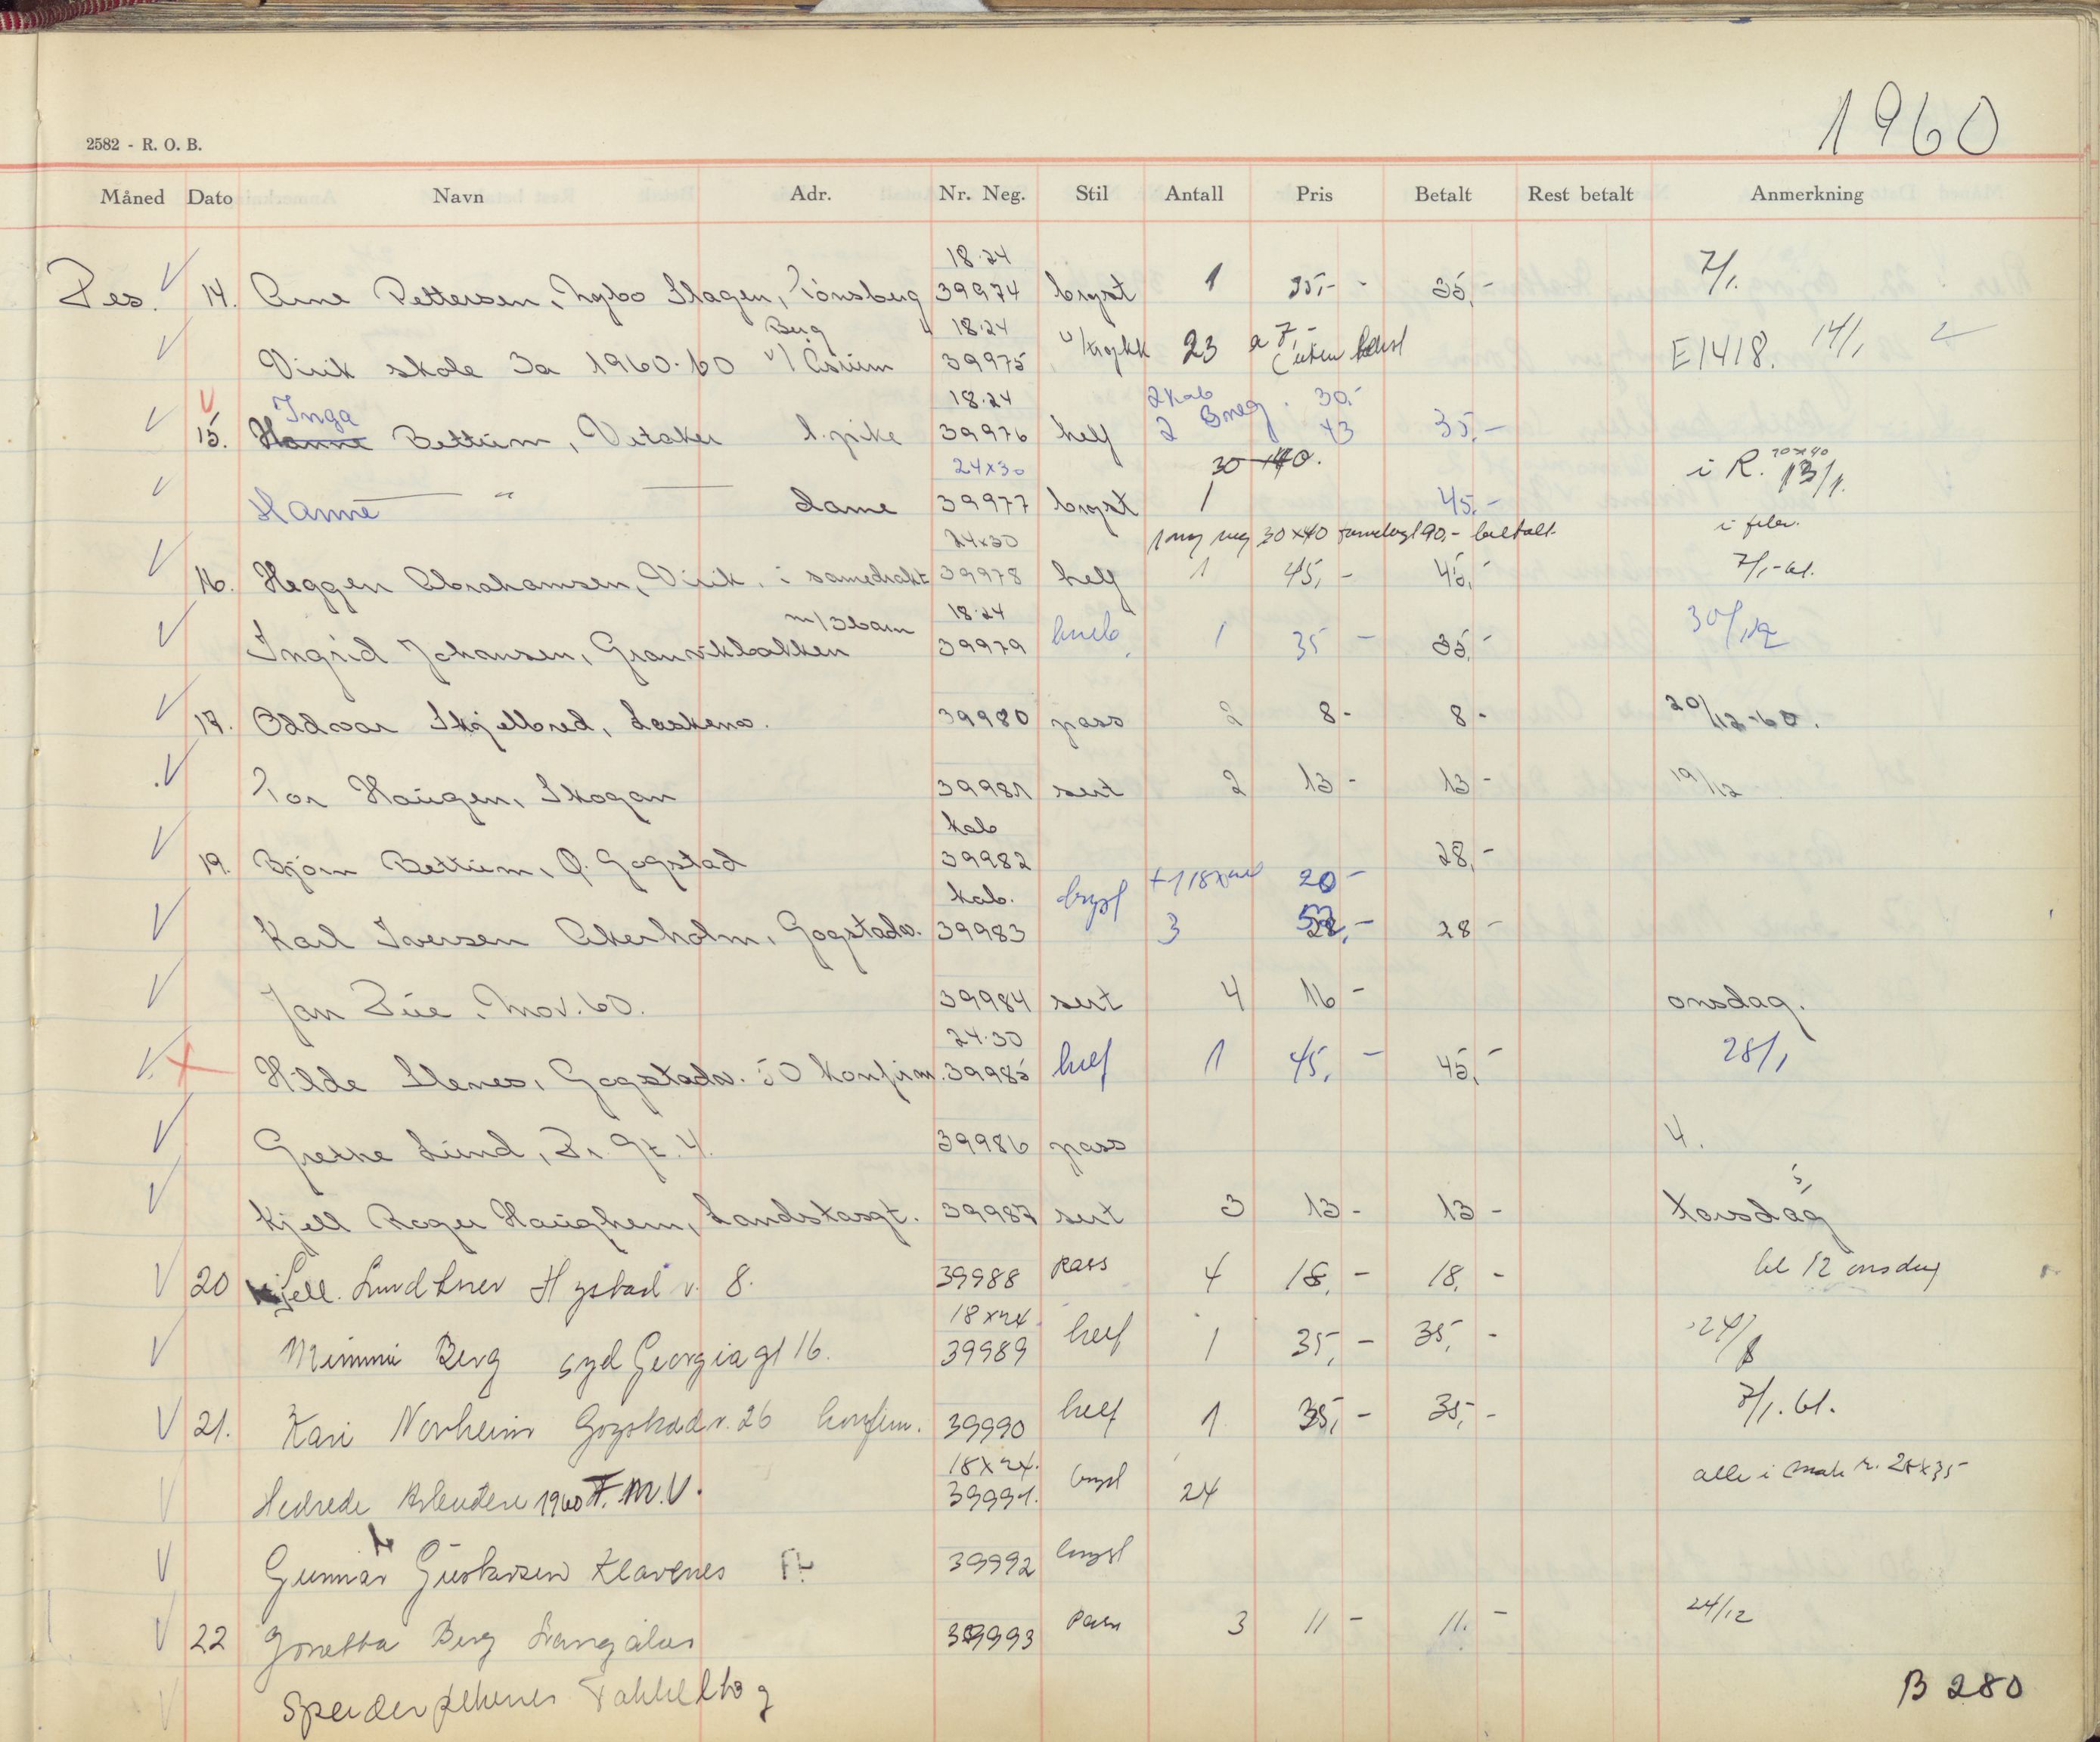 1960
2582 - R. O. B.
Måned Dato Navn Adr. Nr. Neg. Stil Antall Pris Betalt Rest betalt Anmerkning
18.24
Des. 14. Arne Pettersen, Nybo Slagen, Tønsberg 39974 bryst 1 35,- 35,- 7/1.
Berg 18.24
Virik skole 3a 1960.60 v/ Åsrum 39975 23 a 7,- E1418. 14/1
Inga 18.24 2 kab 30.-
15. Hanne Bettum, Vetaker l. pike 39976 helf 2 43 35,-
24x30 30 i R.
Hanne " dame 39977 bryst 1 45,- 13/1.
24x30 30x40 90,- betalt
16. Heggen Abrahamsen, Virik, i samedrakt 39978 helf 1 45,- 45,- 7/1-61.
m/3barn 18.24
Ingrid Johansen, Granvikbakken 39979 kneb. 1 35 - 35,- 30/12
17. Oddvar Skjelbred, Laskenv. 39980 pass 2 8- 8- 20/12-60.
Tor Haugen, Skogan 39981 sert 2 13- 13- 19/12
kab
19. Bjørn Bettum, Ø. Gogstad 39982 28,-
kab. bryst 20-
Karl Iversen Akerholm, Gogstadv. 39983 3 28-
Jan Due, Nov. 60. 39984 sert 4 16- onsdag.
24.30
Hilde Slenes, Gogstadv. 50 konfirm. 39985 helf 1 45,- 45,- 28/1
Grethe Lund, Dr. Gt. 4. 39986 pass 4.
Kjell Roger Haughem, Landstasgt. 39987 sert 3 13- 13- torsdag
20 Kjell. Hystad v. 8. 39988 pass 4 18,- 18,- kl 12 onsdag
18x24
Mimmi Berg syd Georgiagt 16. 39989 helf 1 35,- 35,-
21. Kari Norheim Gogstadv. 26 konfirm. 39990 helf 1 35,- 35,- 7/1. 61.
18x24.
1960 F.M.V. 39991. bryst 24 alle i
Gunnar Gustavsen Klavenes 39992 bryst
22 Berg 39993 pass 3 11- 11.- 24/12
B 280